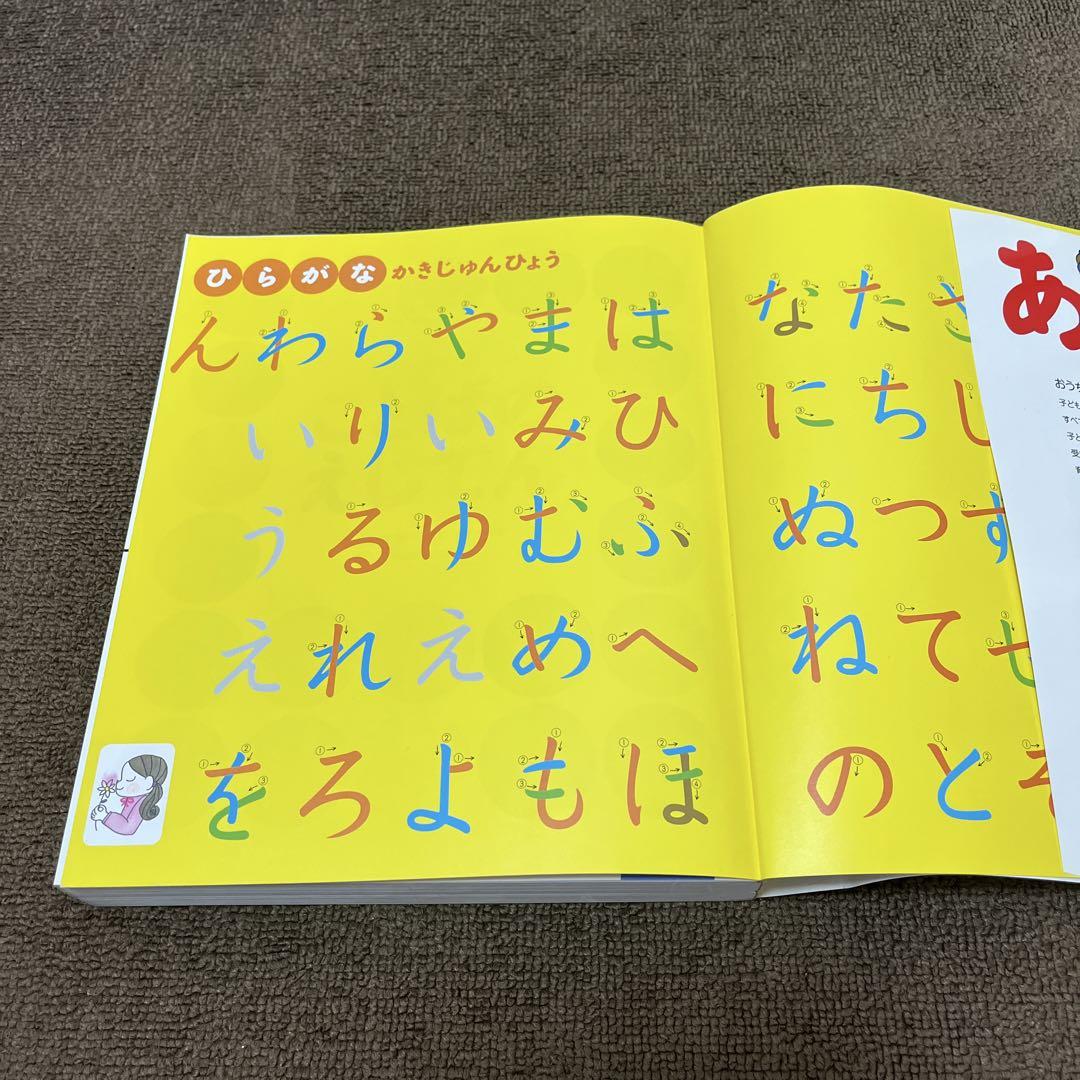 ひらがな かきじゅんひょう
んわらやまは
いりいみひ
うるゆむふ
えれえめへ
をろよもほ
なたさ
にちし
ぬつす
ねてせ
のとそ
あ
おうち
子ども
すべ
子ど